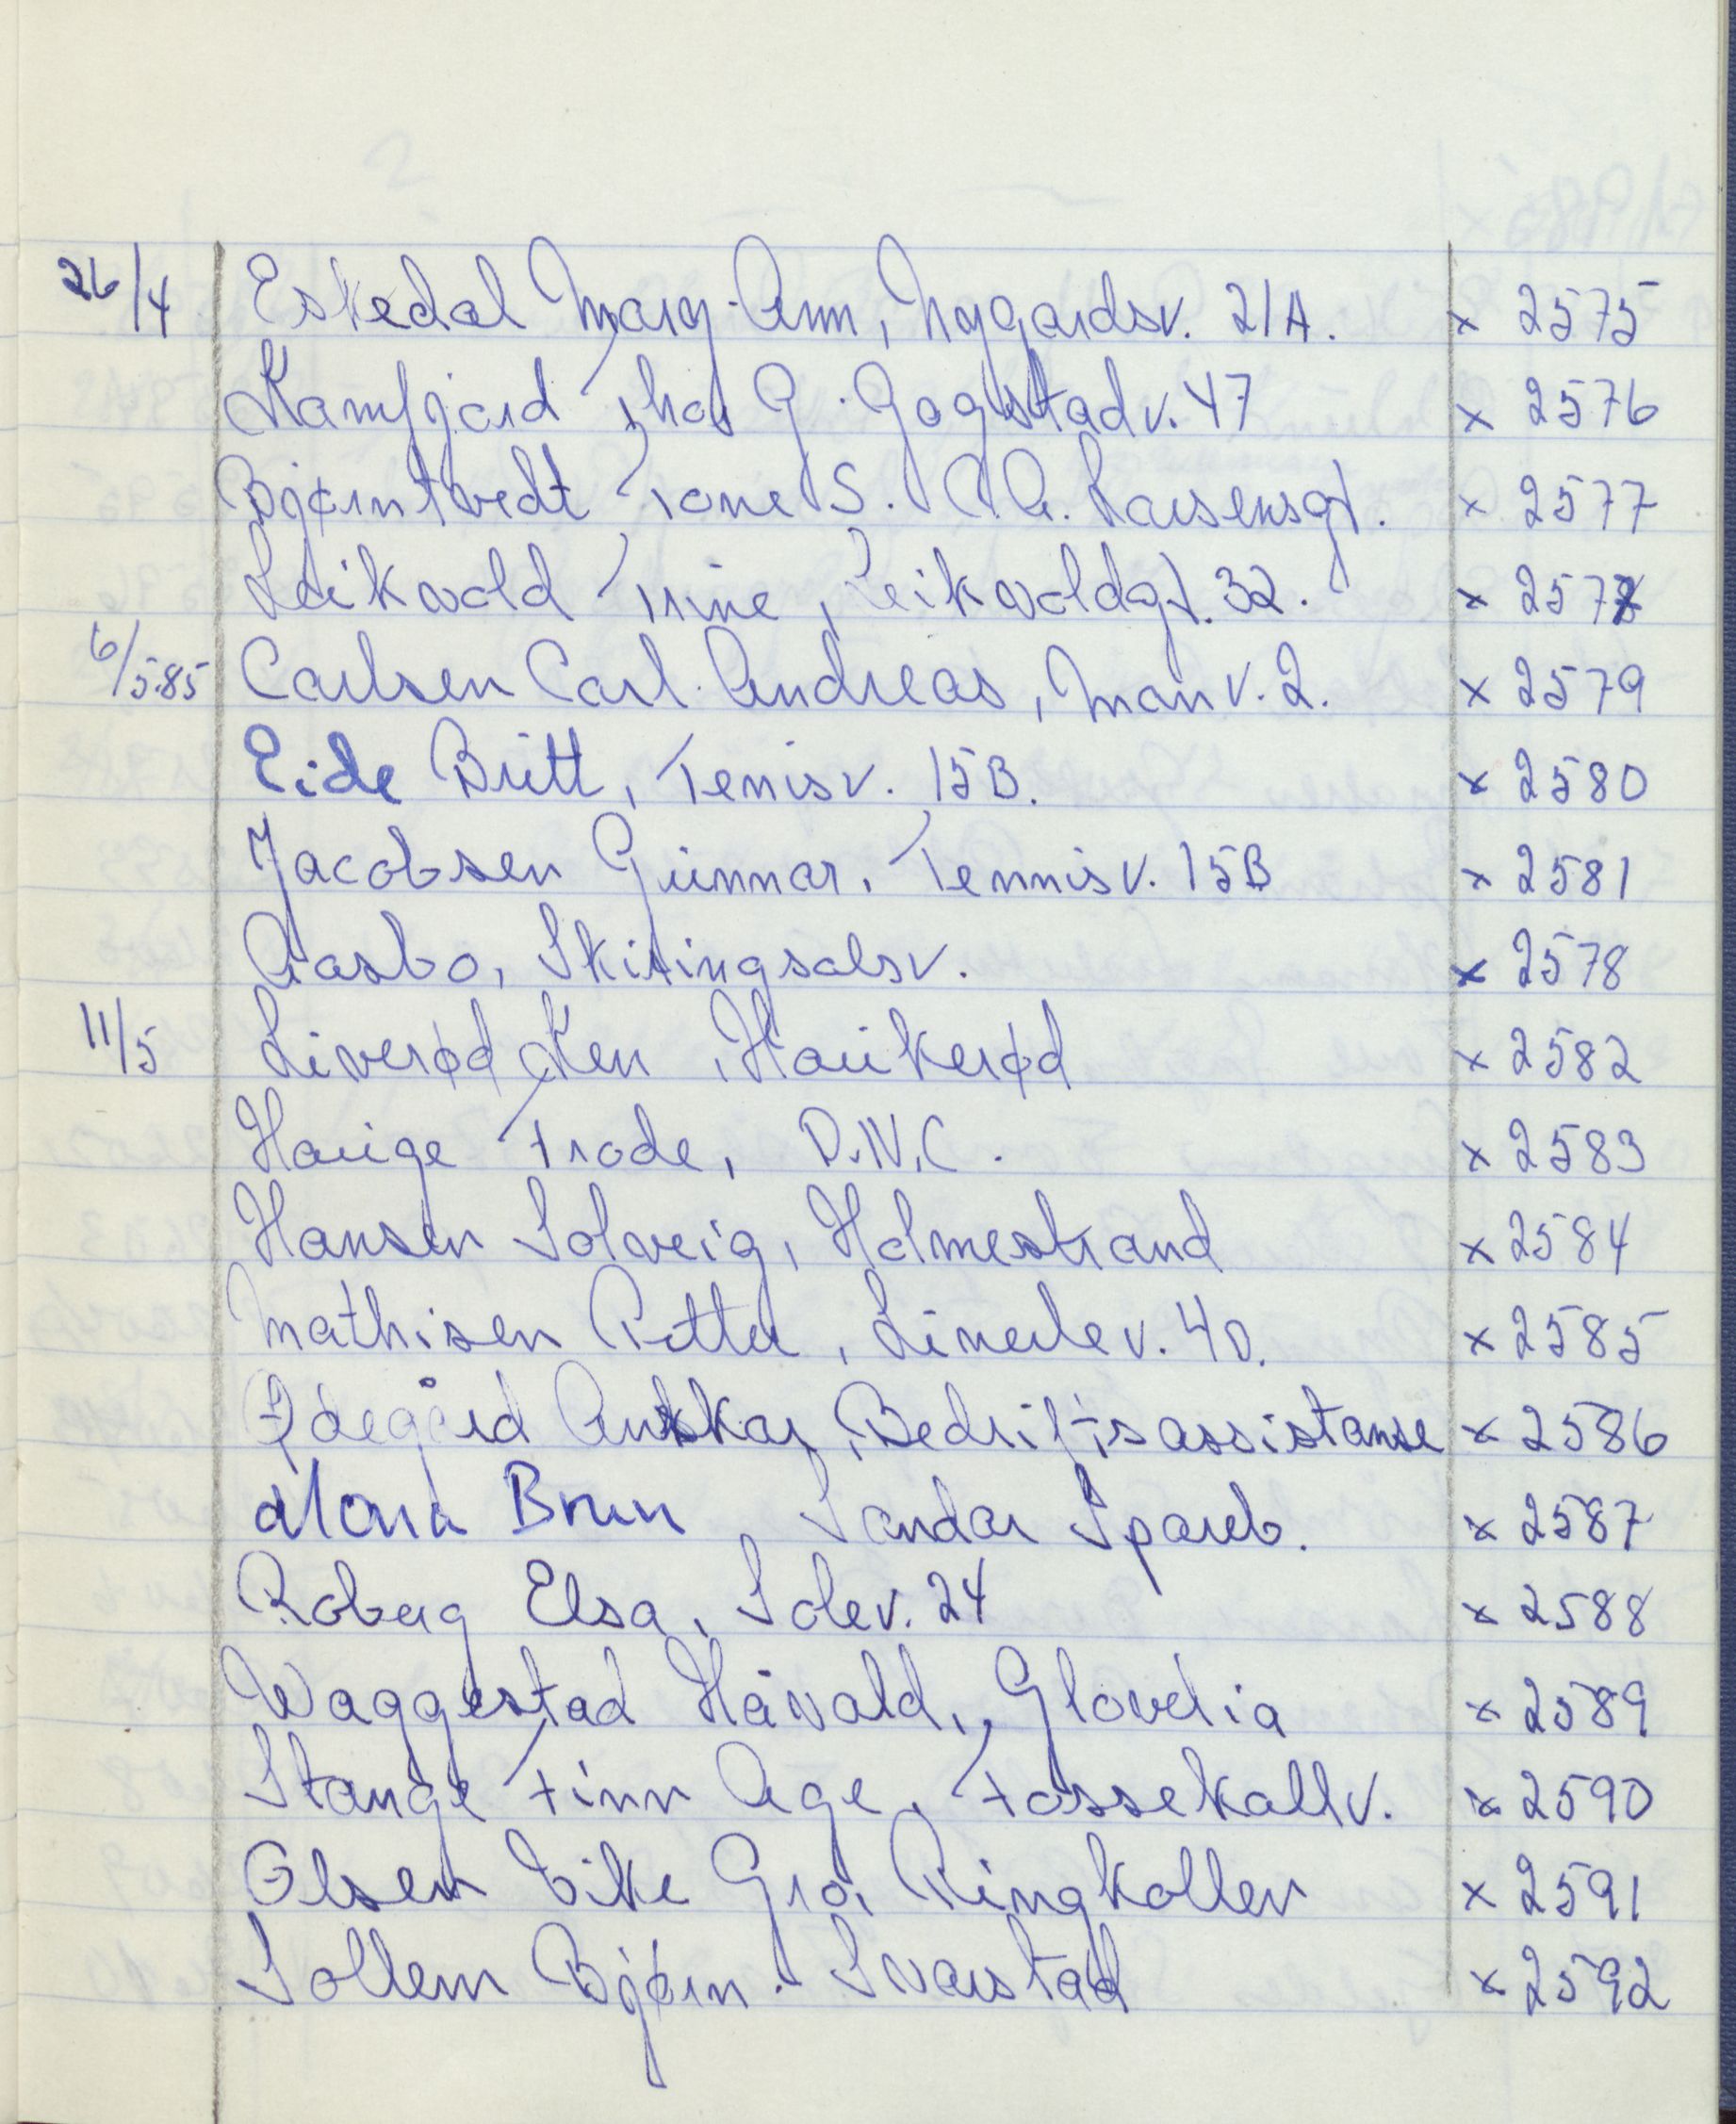 26/4 Eskedal Mary-Ann, Nygaardsv. 21A. x 2575
Kamfjord Thor G. Gogstadv. 47 x 2576
Bjørntvedt Tone S. C.A. Larsensgt. x 2577
Leikvold Trine, Leikvoldgt. 32. x 2578
6/5.85 Carlsen Carl. Andreas, Manv. 2. x 2579
Eide Britt, Tenisv. 15B. x 2580
Jacobsen Gunnar, Tennisv. 15B x 2581
Aasbo, Skiringsalsv. x 2578
11/5 Liverød Ken, Haukerød x 2582
Hauge Frode, D.N.C. x 2583
Hansen Solveig, Holmestrand x 2584
Mathisen Petter, Linerlev. 40. x 2585
Ødegård Anskar, Bedriftsassistanse x 2586
Mona Brun, Sandar Spareb. x 2587
Roberg Elsa, Solev. 24 x 2588
Waggestad Håvald, Glovelia x 2589
Stange Finn Åge, Fossekallv. x 2590
Olsen Eike Gro, Ringkollen x 2591
Sollem Bjørn. Svarstad x 2592